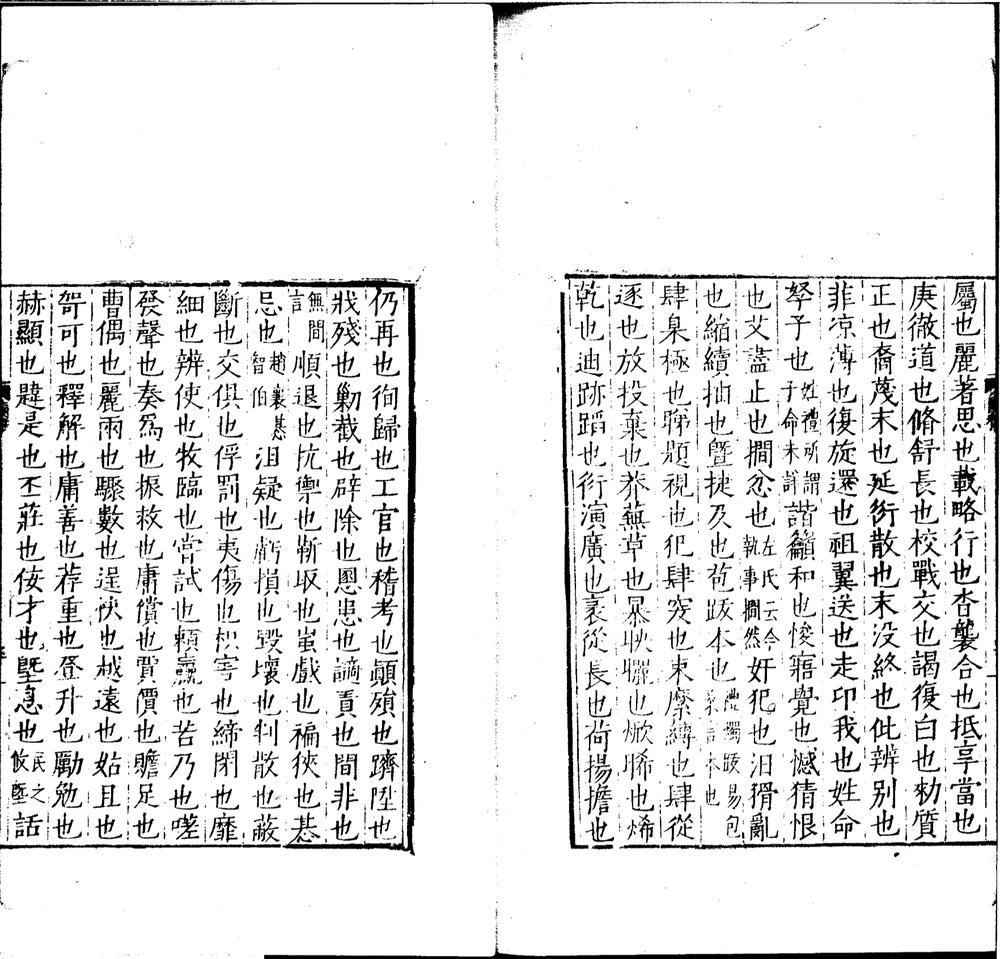 屬也麗著思也載略行也杳襲合也抵享當也
庚徹道也脩舒長也校戰交也謁復白也勑質
正也裔蔑末也延衍散也末沒終也仳辨别也
菲凉薄也復旋還也祖翼送也走卬我也姓命
孥子也姓禮所謂子命未詳諧籲和也悛寤覺也憾猜恨
也艾盡止也撊忿也左氏云今執事撊然奸犯也汩猾亂
也縮續抽也曁捷及也苞跋本也禮燭跋易包桑言本也
肆臬極也睇題視也犯肆突也束縻縛也肆從
逐也放投棄也莽蕪草也暴映曬也焮晞也烯
乾也迪跡蹈也衍演廣也袤從長也荷揚擔也
仍再也徇歸也工官也稽考也顚殞也躋陞也
戕殘也勦截也辟除也慁患也謫責也間非也
無間言順退也抗禦也斬取也蚩戲也褊狹也惎
忌也趙襄惎智伯沮疑也虧損也毀壞也判散也蔽
斷也交俱也俘罰也夷傷也枳害也締閉也靡
細也辨使也牧臨也嘗試也賴贏也苦乃也嗟
發聲也奏爲也振救也庸償也賈價也贍足也
曹偶也麗兩也驟數也逞快也越遠也姑且也
哿可也釋解也庸善也荐重也登升也勵勉也
赫顯也韙是也丕莊也佞才也塈息也民之攸塈話